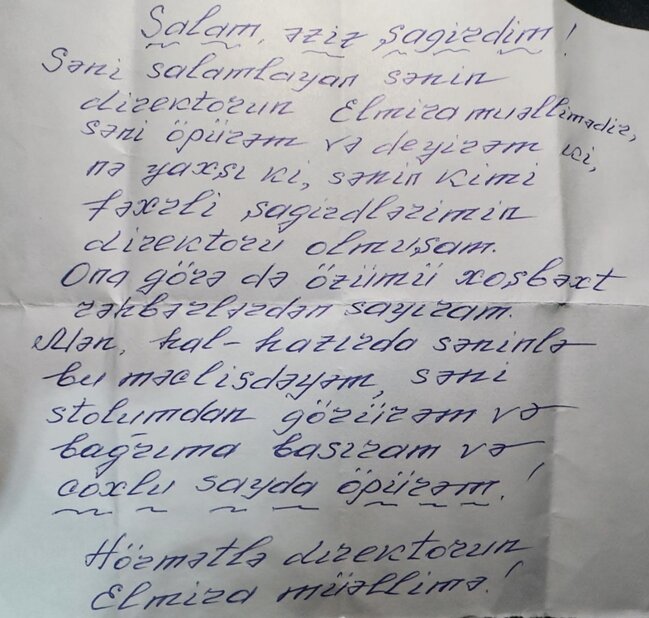 Salam, əziz şagirdim!
Səni salamlayan sənin
direktorun Elmira muəllimədir,
səni öpürəm və deyirəm ki,
nə yaxşı ki, sənin kimi
fəxrli şagirdlərimin
direktoru olmuşam.
Ona görə də özümü xoşbəxt
rəhbərlərdən sayıram.
Mən, hal-hazırda səninlə
bu məclisdəyəm, səni
stolumdan görürəm və
bağrıma basıram və
çoxlu sayda öpürəm!
Hörmətlə direktorun
Elmira müəllimə!